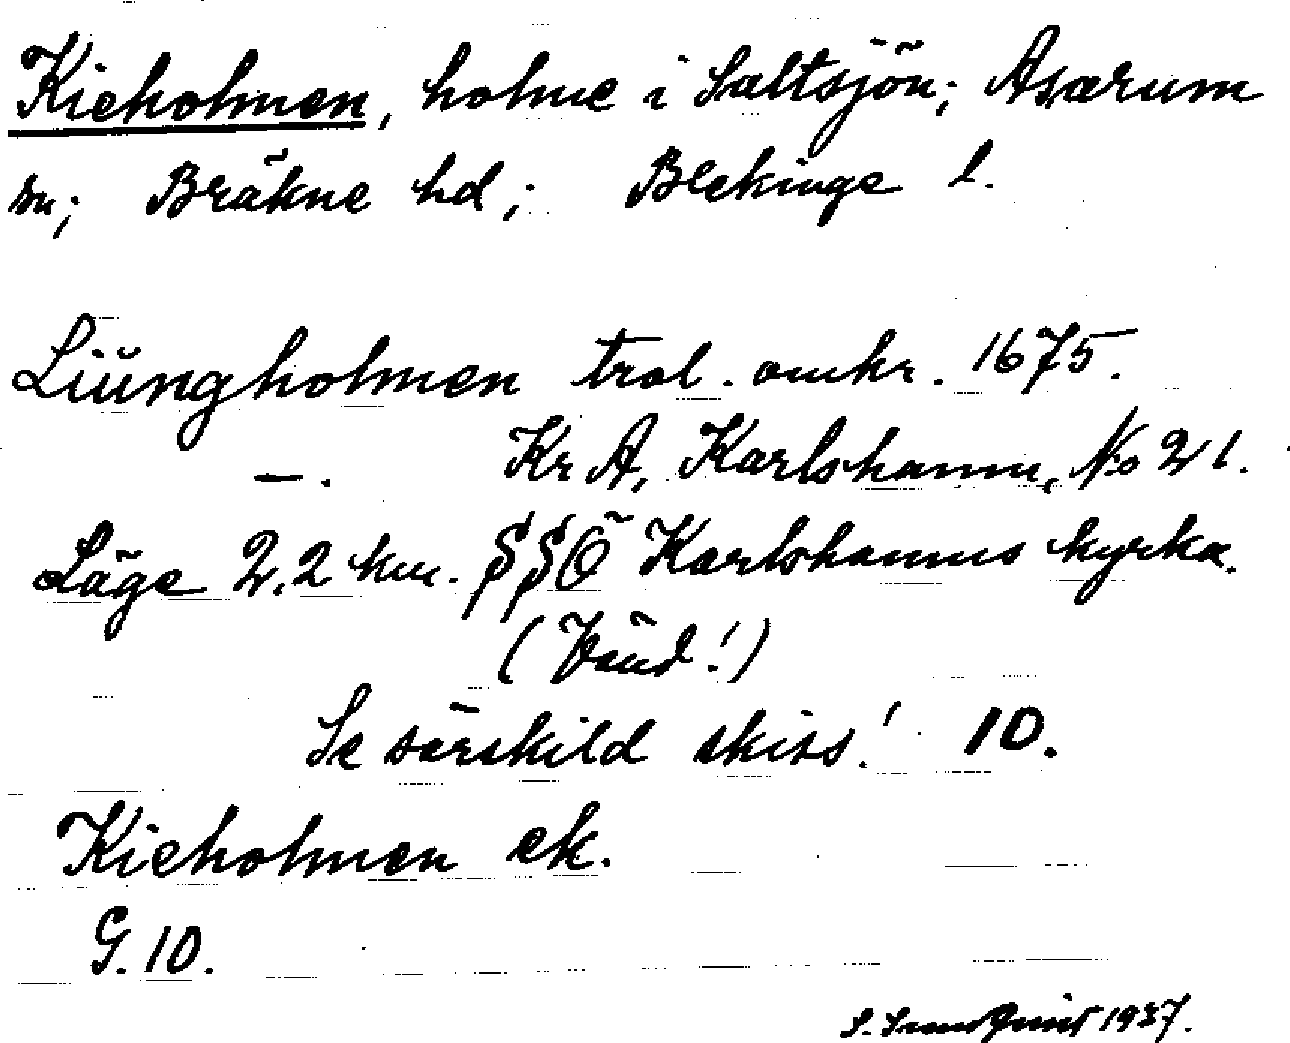 Kieholmen, holme i Saltsjön; Asarum
sn; Bräkne hd; Blekinge l.
Liŭngholmen trol. omkr. 1675.
—. Kr A, Karlshamn, No 21.
Läge 2,2 km. SSÖ Karlshamns kyrka.
(Vänd!)
Se särskild skiss! 10.
Kieholmen ek.
G. 10.
1937.